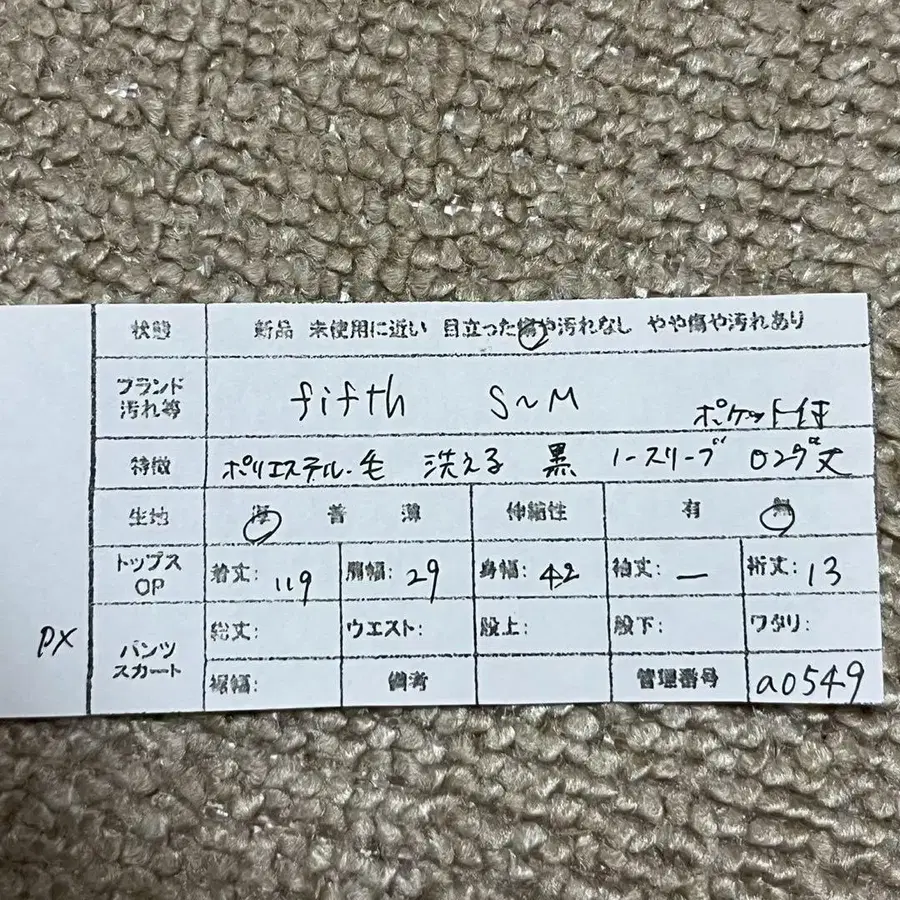 状態 新品 未使用に近い 目立った傷や汚れなし やや傷や汚れあり
ブランド 汚れ等 fifth S~M ポケット付
特徴 ポリエステル・毛 洗える 黒 ノースリーブ ロング丈
生地 厚 普 薄 伸縮性 有 無
トップス OP 着丈: 119 肩幅: 29 身幅: 42 袖丈: ― 裄丈: 13
PX パンツ スカート 総丈: ウエスト: 股上: 股下: ワタリ:
裾幅: 備考 管理番号 a0549